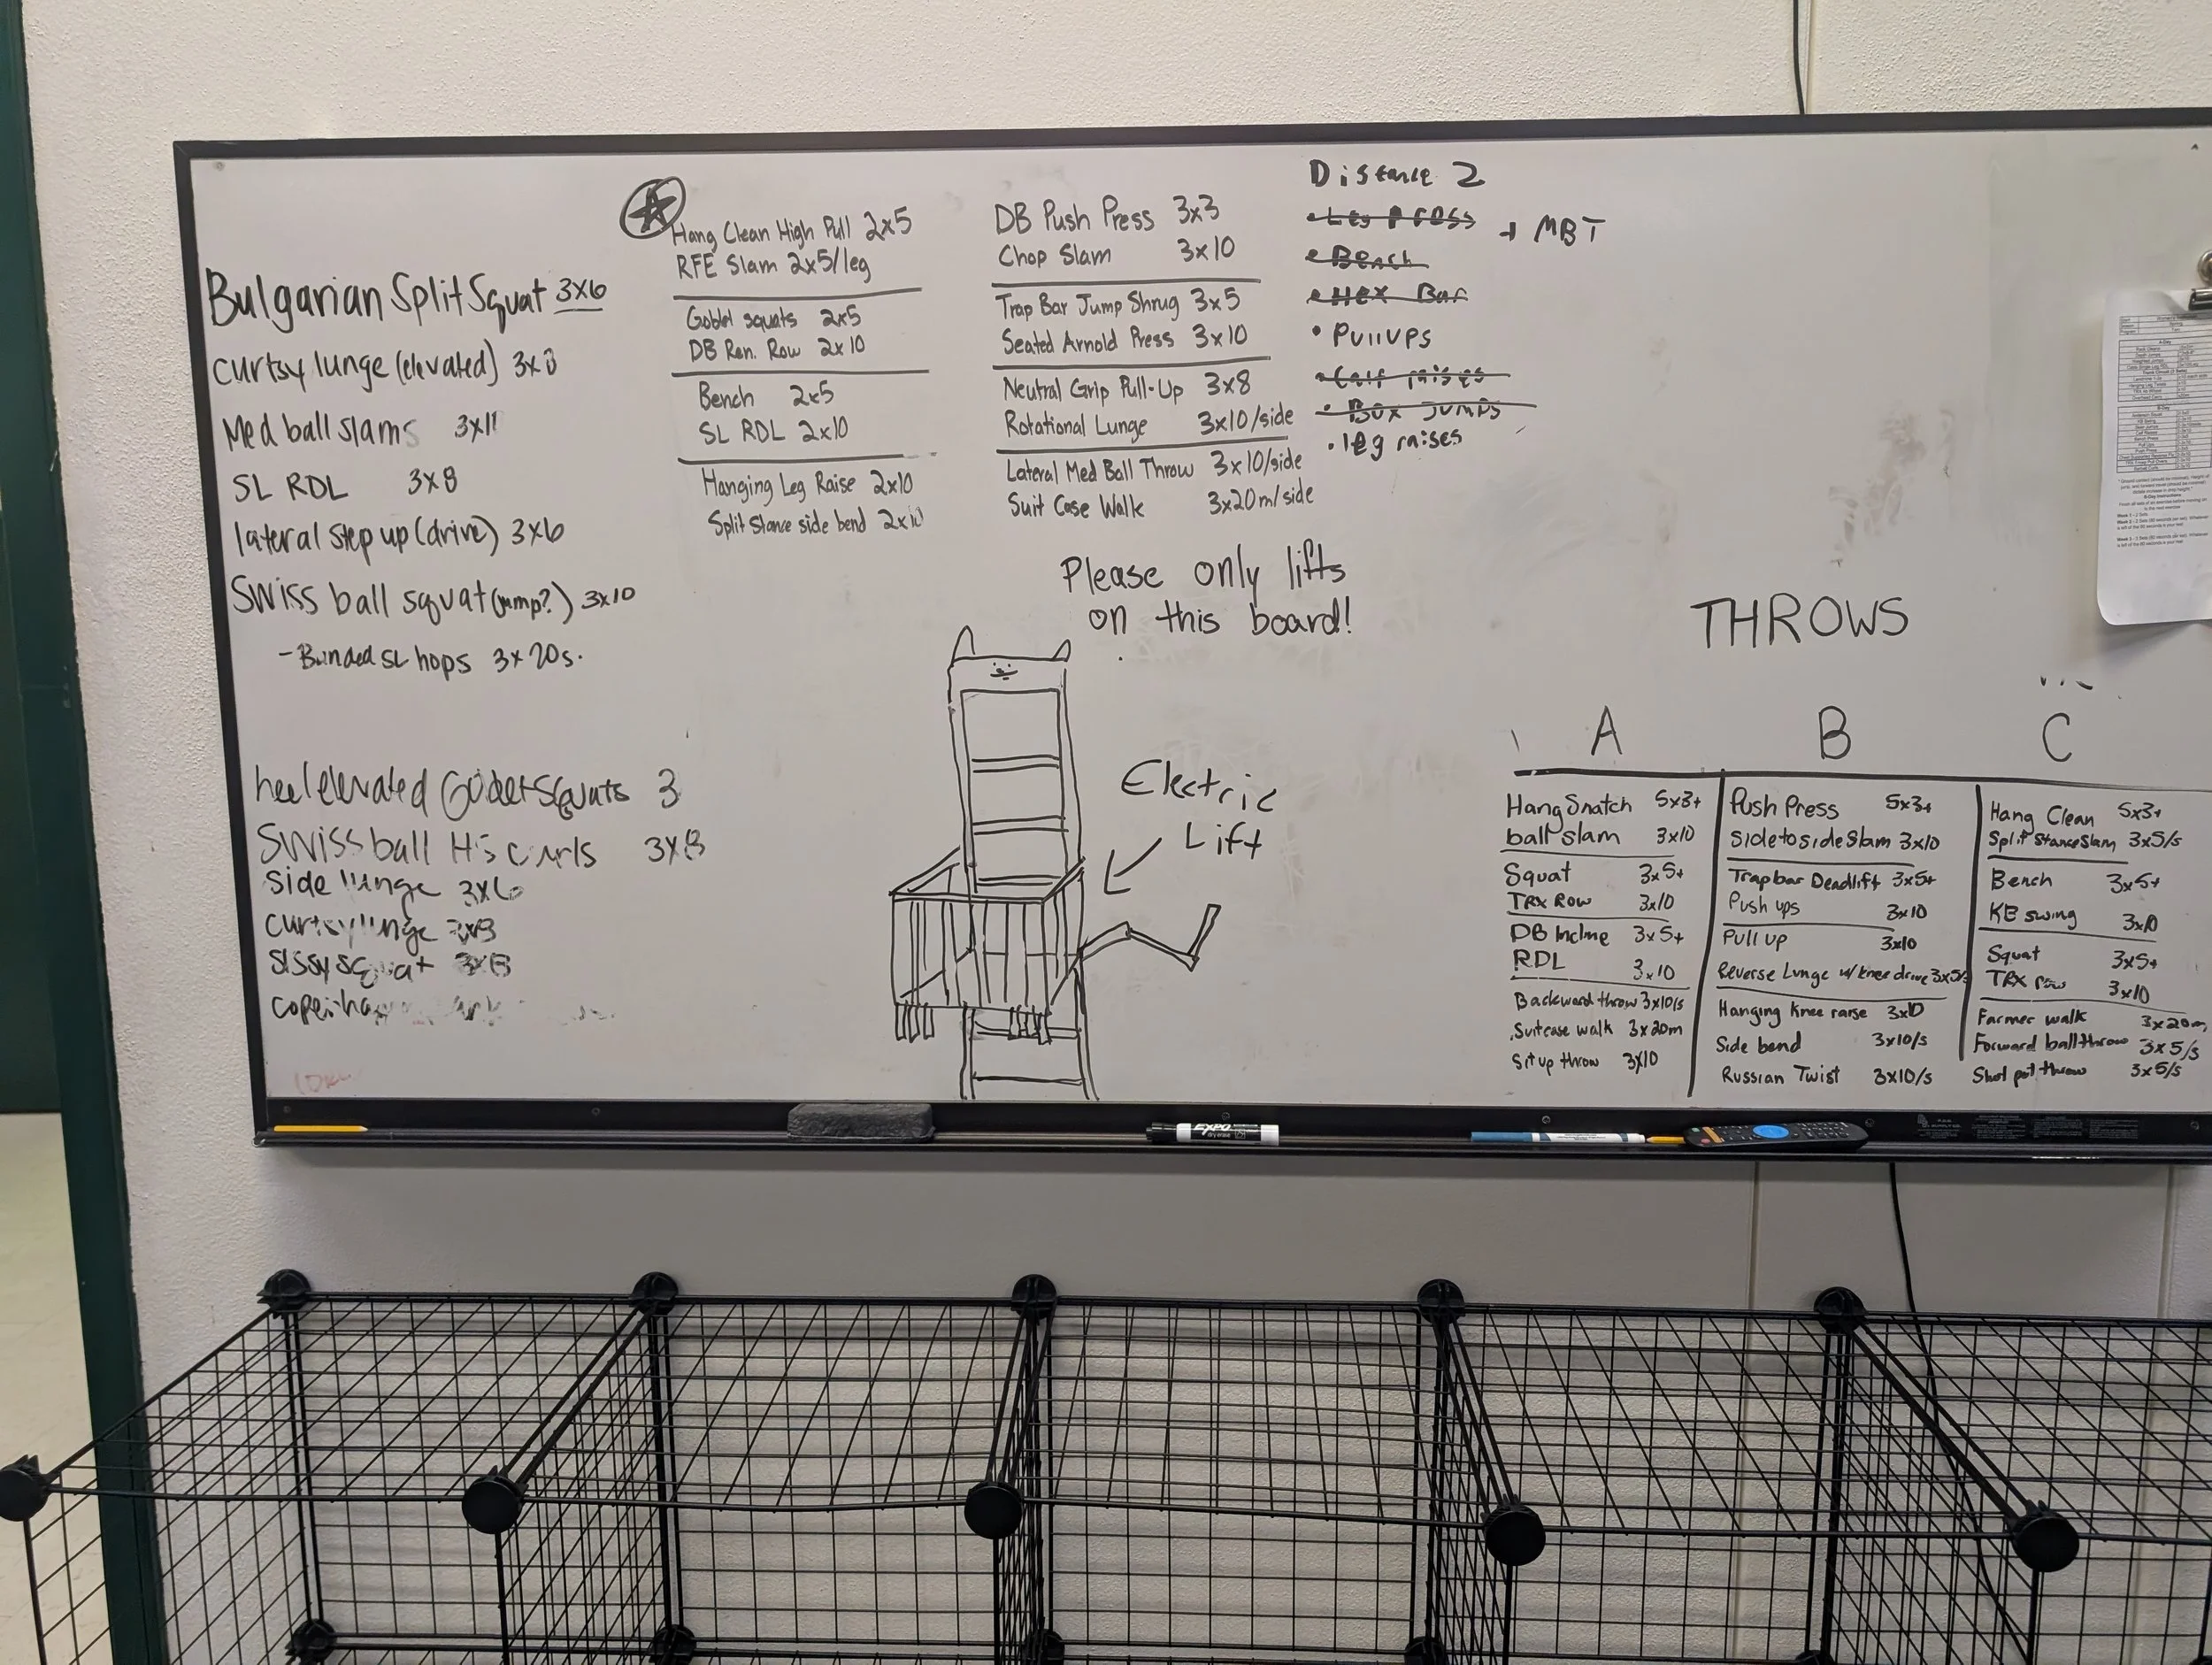 Bulgarian Split Squat 3x6
curtsy lunge (elevated) 3x8
Med ball slams 3x11
SL RDL 3x8
lateral step up (drive) 3x6
Swiss ball squat (jump?) 3x10
- Banded SL hops 3x20s.
heel elevated Goblet Squats 3
Swiss ball H's curls 3x8
side lunge 3x6
curtsy lunge 3x8
sissy squat 3x8
Hang Clean High Pull 2x5
RFE Slam 2x5/leg
Goblet squats 2x5
DB Ren. Row 2x10
Bench 2x5
SL RDL 2x10
Hanging Leg Raise 2x10
Split Stance side bend 2x10
DB Push Press 3x3
Chop Slam 3x10
Trap Bar Jump Shrug 3x5
Seated Arnold Press 3x10
Neutral Grip Pull-Up 3x8
Rotational Lunge 3x10/side
Lateral Med Ball Throw 3x10/side
Suit Case Walk 3x20m/side
Distance 2
• Leg Press + MBT
• Bench
• Hex Bar
• Pullups
• Calf raises
• Box Jumps
• leg raises
Please only lifts
on this board!
Electric
Lift
THROWS
A
Hang Snatch 5x3+
ball slam 3x10
Squat 3x5+
TRX Row 3x10
DB Incline 3x5+
RDL 3x10
Backward throw 3x10/s
Suitcase walk 3x20m
Sit up throw 3x10
B
Push Press 5x3+
Side to side Slam 3x10
Trap bar Deadlift 3x5+
Push ups 3x10
Pull up 3x10
Reverse Lunge w/ knee drive 3x5/s
Hanging knee raise 3x10
Side bend 3x10/s
Russian Twist 3x10/s
C
Hang Clean 5x3+
Split Stance Slam 3x5/s
Bench 3x5+
KB swing 3x10
Squat 3x5+
TRX row 3x10
Farmer walk 3x20m
Forward ball throw 3x5/s
Shot put throw 3x5/s
EXPO
dry erase